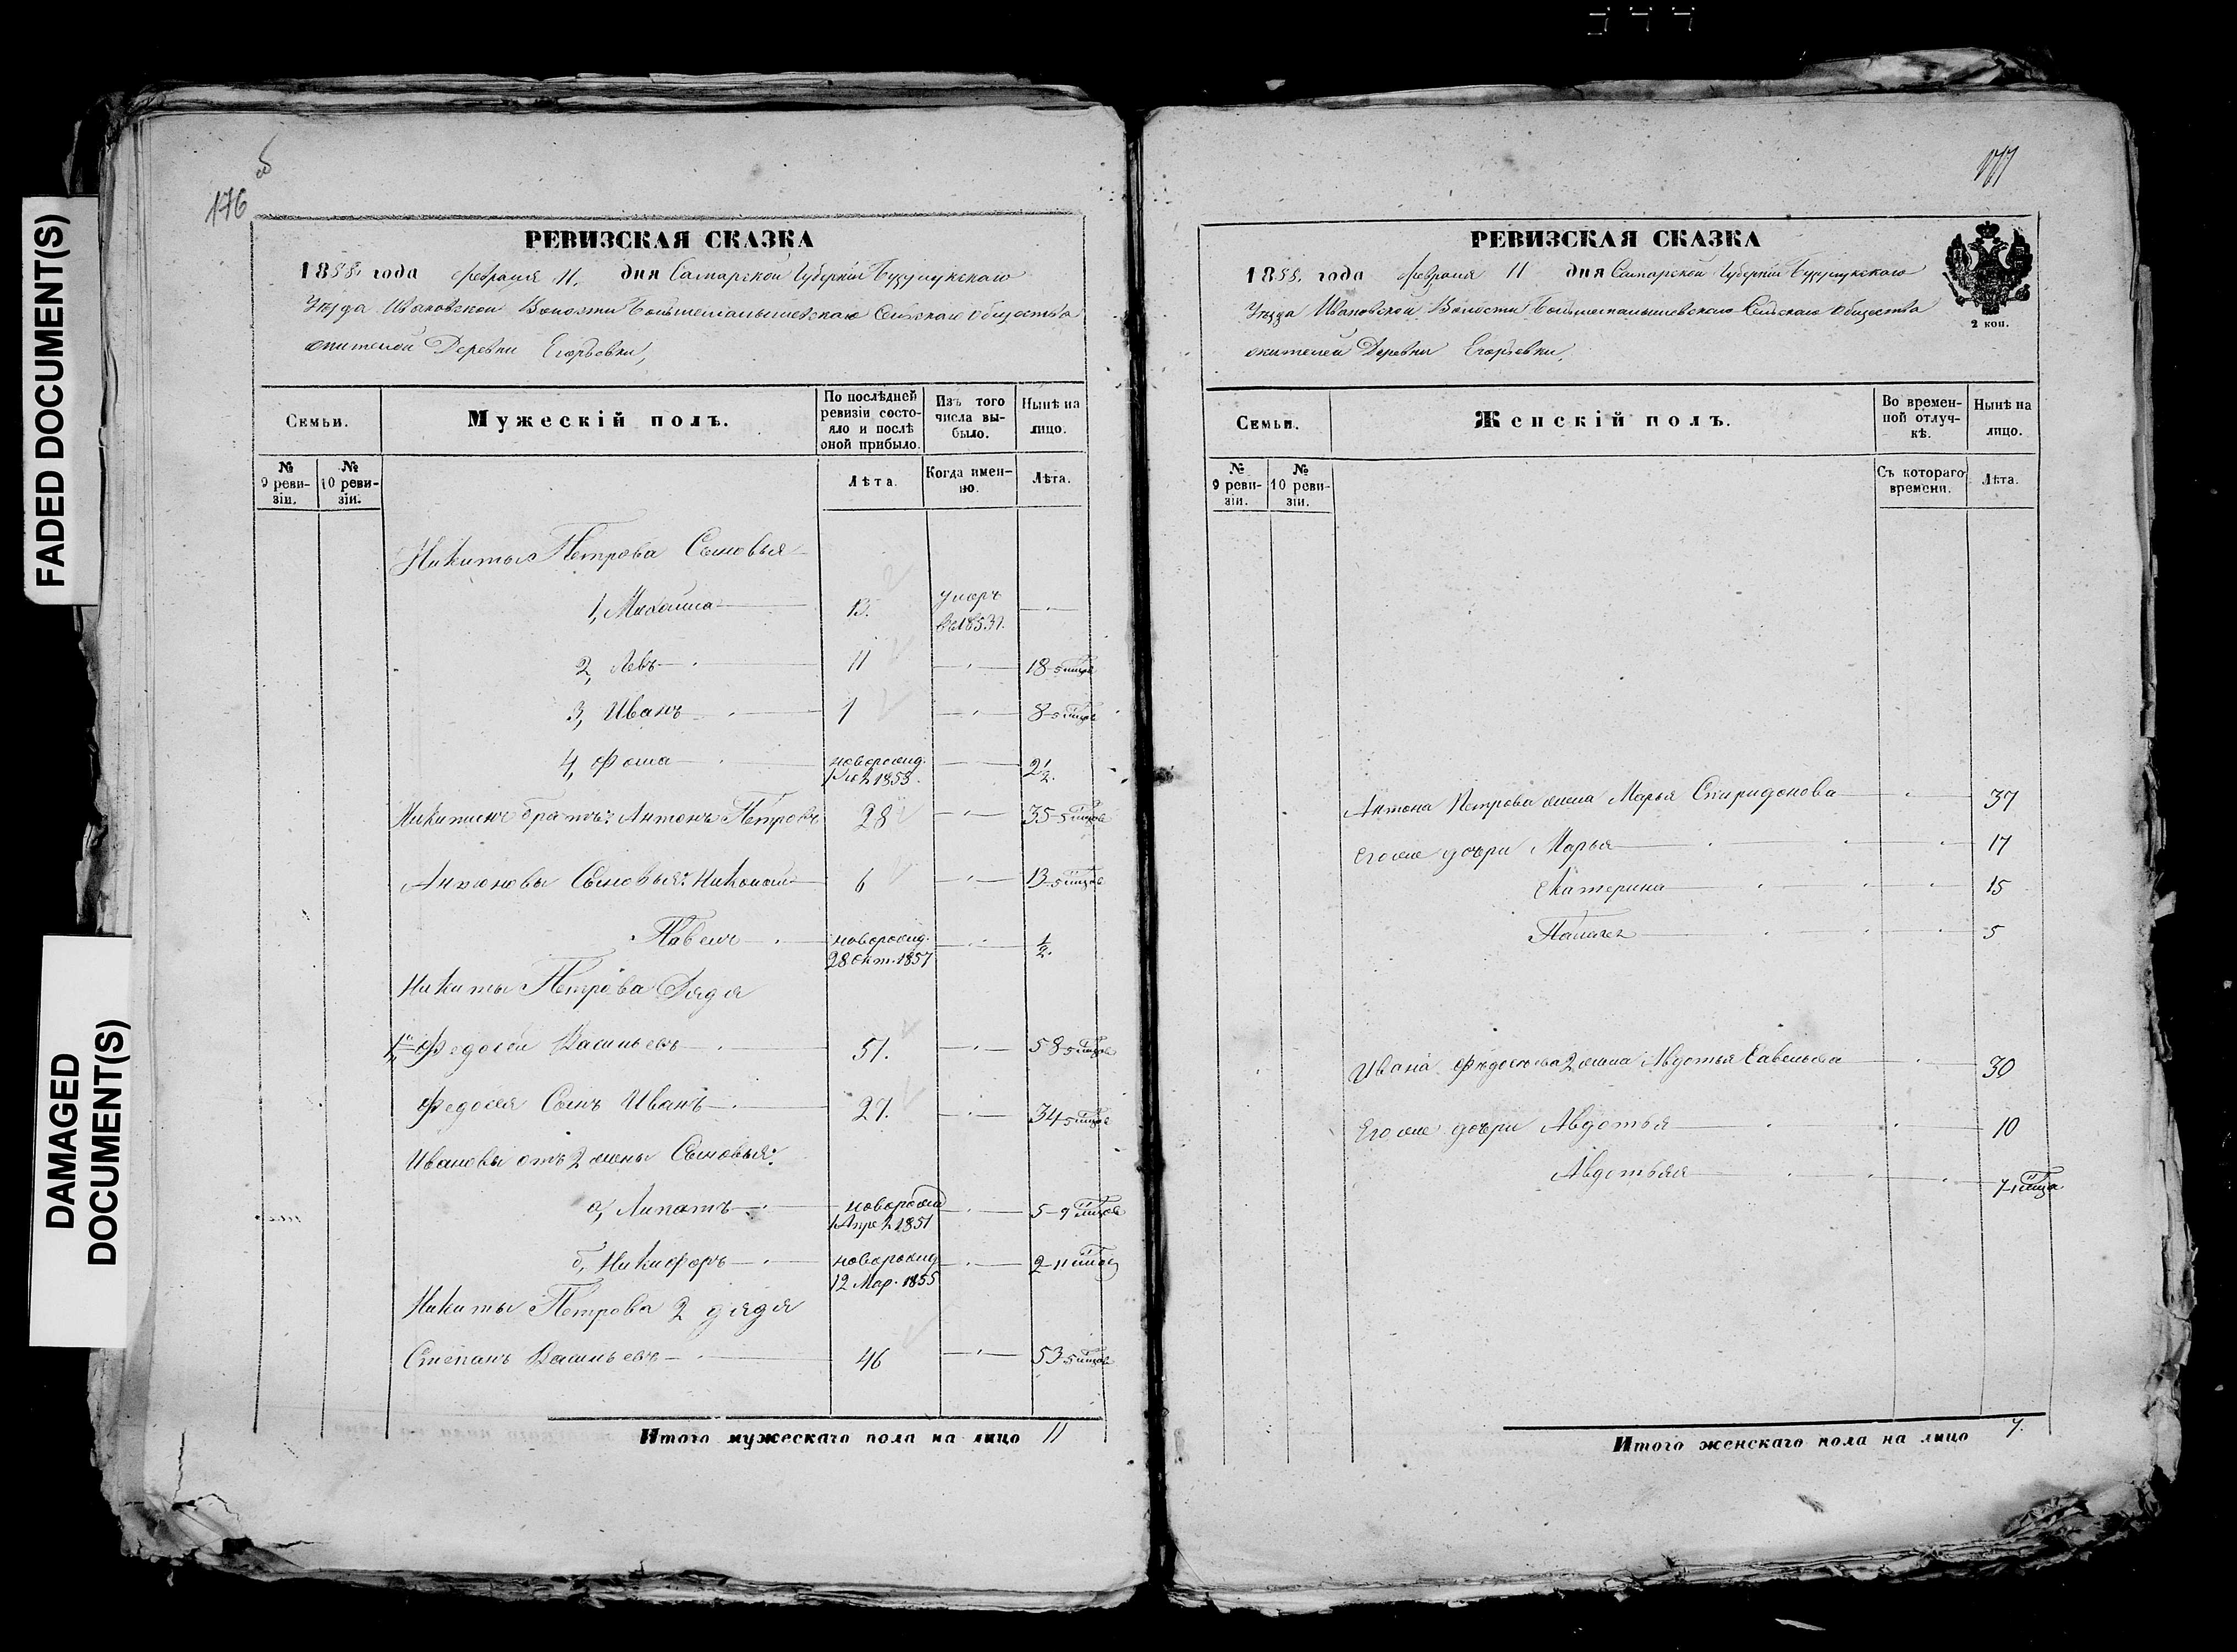 FADED DOCUMENT(S)
DAMAGED
DOCUMENT(S)
176
РЕВИЗСКАЯ СКАЗКА
1858. года февраля 11. дня Самарской Губерніи Бузулукскаго
Уѣзда Ивановской Волости Сельскаго Общества
жителей Деревни Егорьевки,
Семьи.
Мужескій полъ.
По послѣдней
ревизіи состо-
яло и послѣ
оной прибыло.
Изъ того
числа вы-
было.
Нынѣ на
лицо.
№
9 реви-
зіи.
№
10 реви-
зіи.
Лѣта.
Когда имен-
но.
Лѣта.
Никиты Петрова Сыновья
1, Михайла 13. умеръ
въ 1853 г.
2, Левъ 11 18-5
3, Иванъ 1 8-5
4, Фома новорожд. 2 1/2.
1853.
Никитинъ братъ: Антонъ Петровъ 28 35-5
Антоновы Сыновья: Николай 6 13-5
Павелъ новорожд. 1/2.
28 Окт. 1857
Никиты Петрова Дядя
1й Федосей Васильевъ 51. 58-5
Федосея Сынъ Иванъ 27. 34-5
Ивановы отъ 2 жены Сыновья:
а, Липатъ новорожд 5-9
1 Апрѣ. 1851
б, Никифоръ новорожд 2-11
12 Мар. 1855
Никиты Петрова 2 дядя
Степанъ Васильевъ 46 53-5
Итого мужескаго пола на лицо 11
177
РЕВИЗСКАЯ СКАЗКА
1858. года февраля 11 дня Самарской Губерніи Бузулукскаго
Уѣзда Ивановской Волости Сельскаго Общества
жителей Деревни Егорьевки,
2 коп.
Семьи.
Женскій полъ.
Во времен-
ной отлуч-
кѣ.
Нынѣ на
лицо.
№
9 реви-
зіи.
№
10 реви-
зіи.
Съ котораго
времени.
Лѣта.
Антона Петрова жена Марья Спиридонова 37
Его же дочри Марья 17
Екатерина 15
Палагея 5
Ивана Федосеева 2 жена Авдотья Савельева 30
Его же дочри Авдотья 10
Авдотья 7-1
Итого женскаго пола на лицо 7.